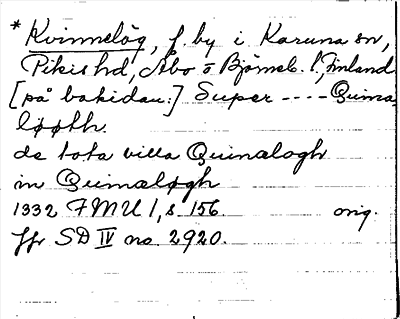 * Kvinneløg, f. by i Karuna sn,
Pikis hd, Åbo o Björneb. l., Finland
[på baksidan:] Super ---- Quina
løøth.
de tota villa Quinalogh
in Quinaløgh
1332 FMU 1, s. 156. orig.
Jfr SD IV no. 2920.